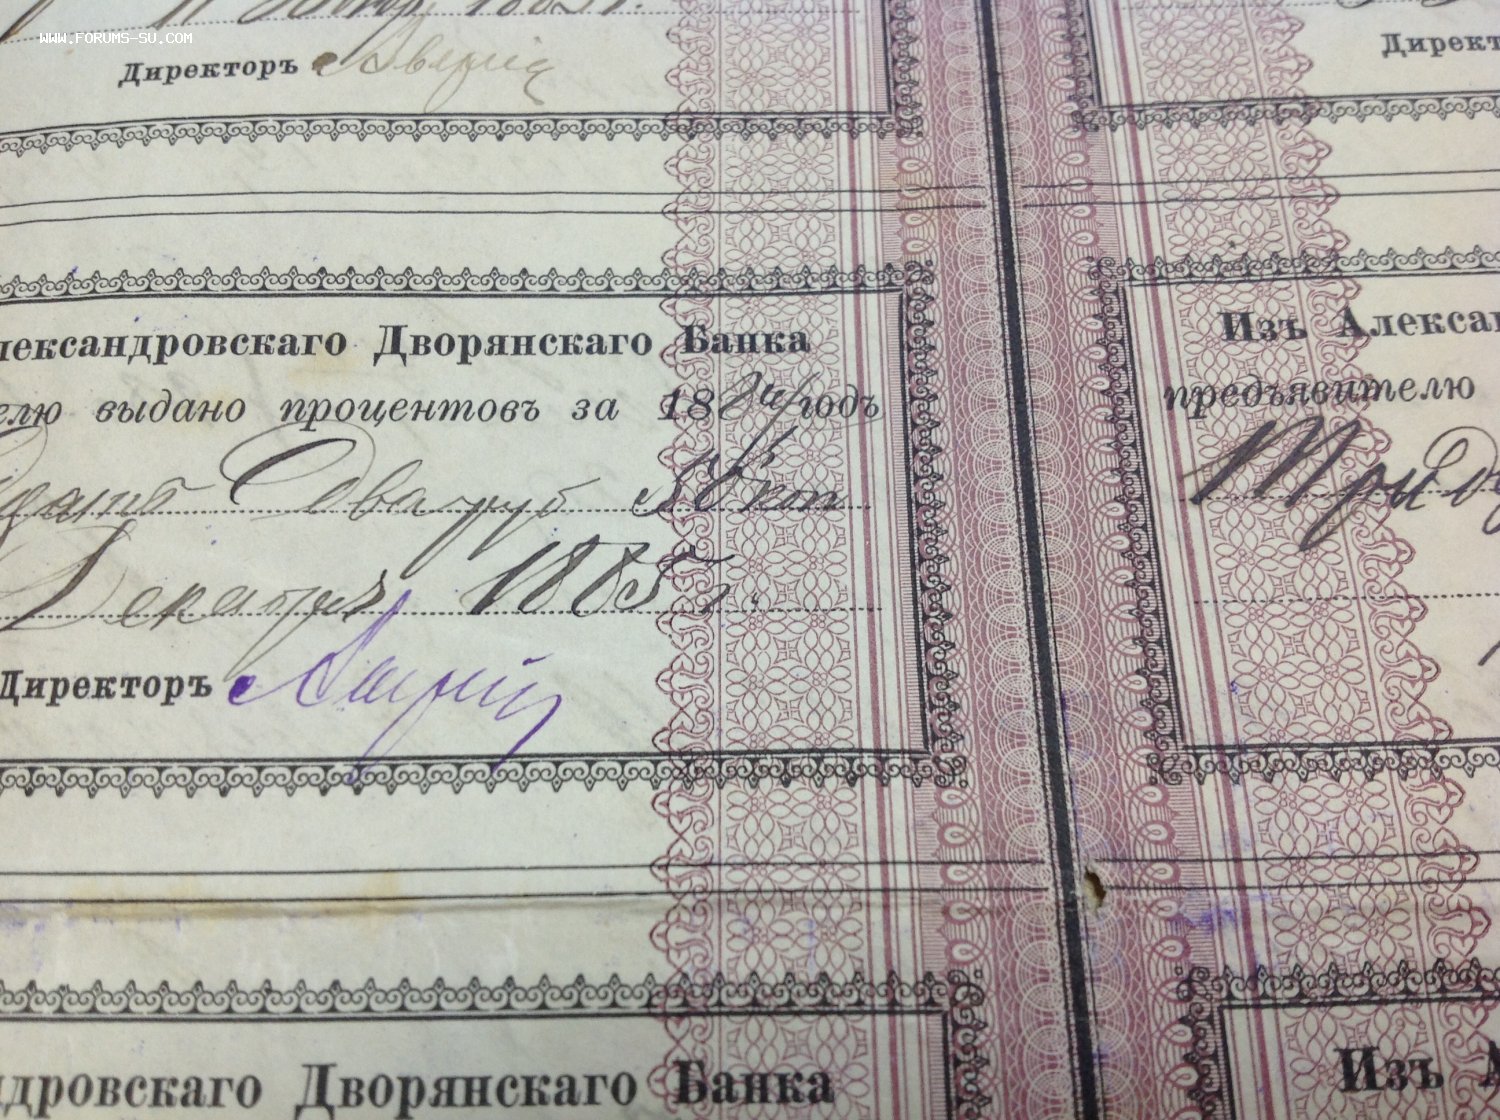 WWW.FORUMS-SU.COM
Директоръ
Директ
лександровскаго Дворянскаго Банка
елю выдано процентовъ за 1884 годъ
два руб коп
Декабря 1885 г.
Директоръ
Изъ Алекса
предъявителю
Трид
ндровскаго Дворянскаго Банка
Изъ А